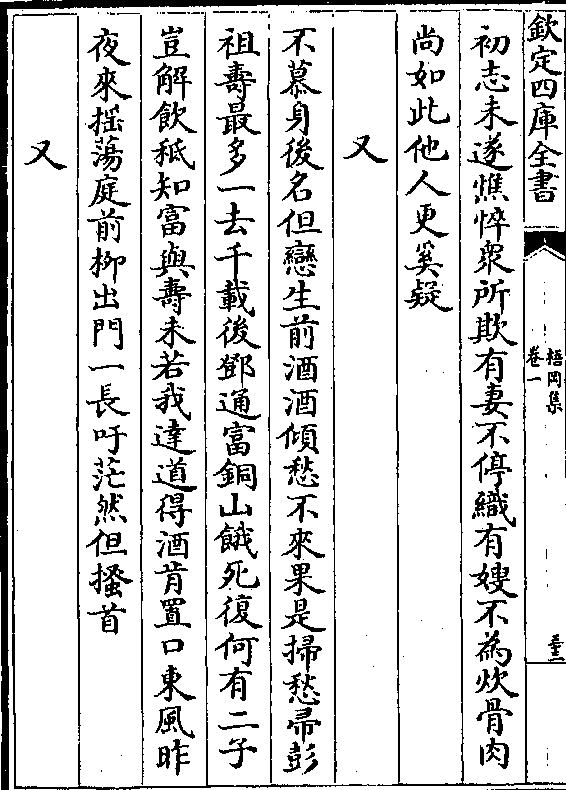 欽定四庫全書
梧岡集
卷一
初志未遂憔悴衆所欺有妻不停織有嫂不為炊骨肉
尚如此他人更奚疑
又
不慕身後名但戀生前酒酒傾愁不來果是掃愁帚彭
祖壽最多一去千載後鄧通富銅山餓死復何有二子
豈解飲秪知富與壽未若我達道得酒肯置口東風昨
夜來揺蕩庭前栁出門一長吁茫然但搔首
又